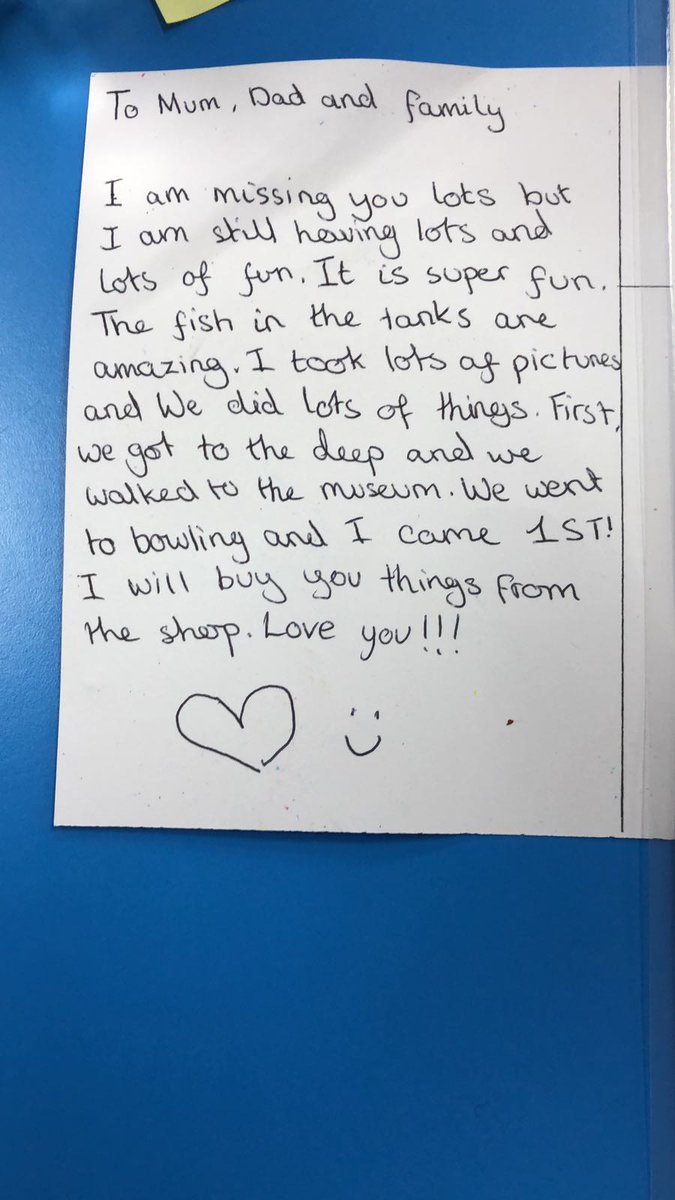 To Mum, Dad and family
I am missing you lots but
I am still having lots and
lots of fun. It is super fun.
The fish in the tanks are
amazing. I took lots of pictures
and We did lots of things. First,
we got to the deep and we
walked to the museum. We went
to bowling and I came 1ST!
I will buy you things from
the shop. Love you!!!